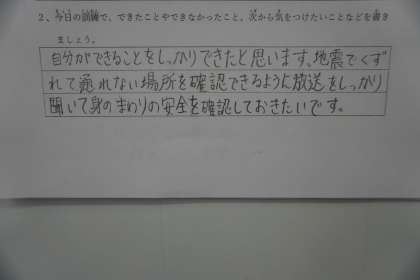 2、今日の訓練で、できたことやできなかったこと、次から気をつけたいことなどを書き
ましょう。
自分ができることをしっかりできたと思います。地震でくず
れて通れない場所を確認できるように放送をしっかり
聞いて身のまわりの安全を確認しておきたいです。